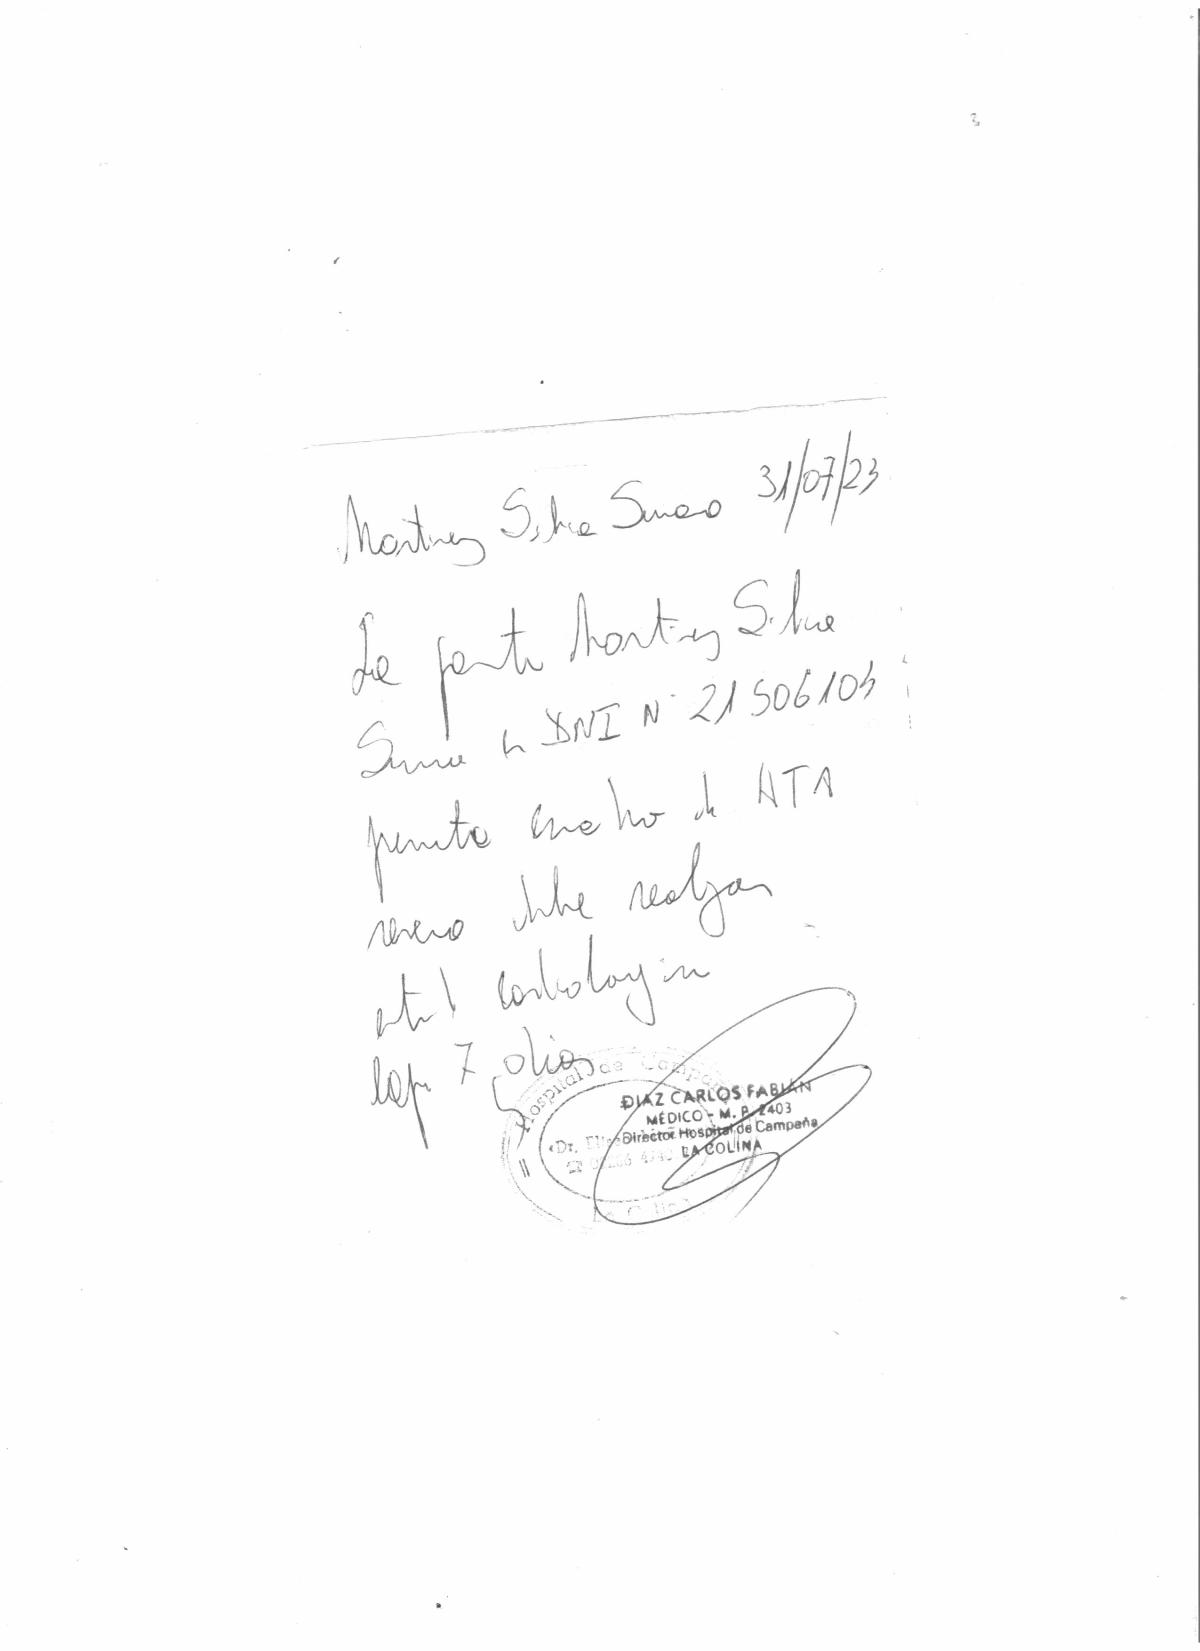 Martinez Silvia Susana 31/07/23
La paciente Martinez Silvia
Susana DNI N° 21506104
presenta cuadro de HTA
severo debe realizar
control cardiologico
7 dias
Hospital de Campaña
DIAZ CARLOS FABIÁN
MÉDICO - M. P. 2403
Director Hospital de Campaña
LA COLINA
«Dr.
La Colina